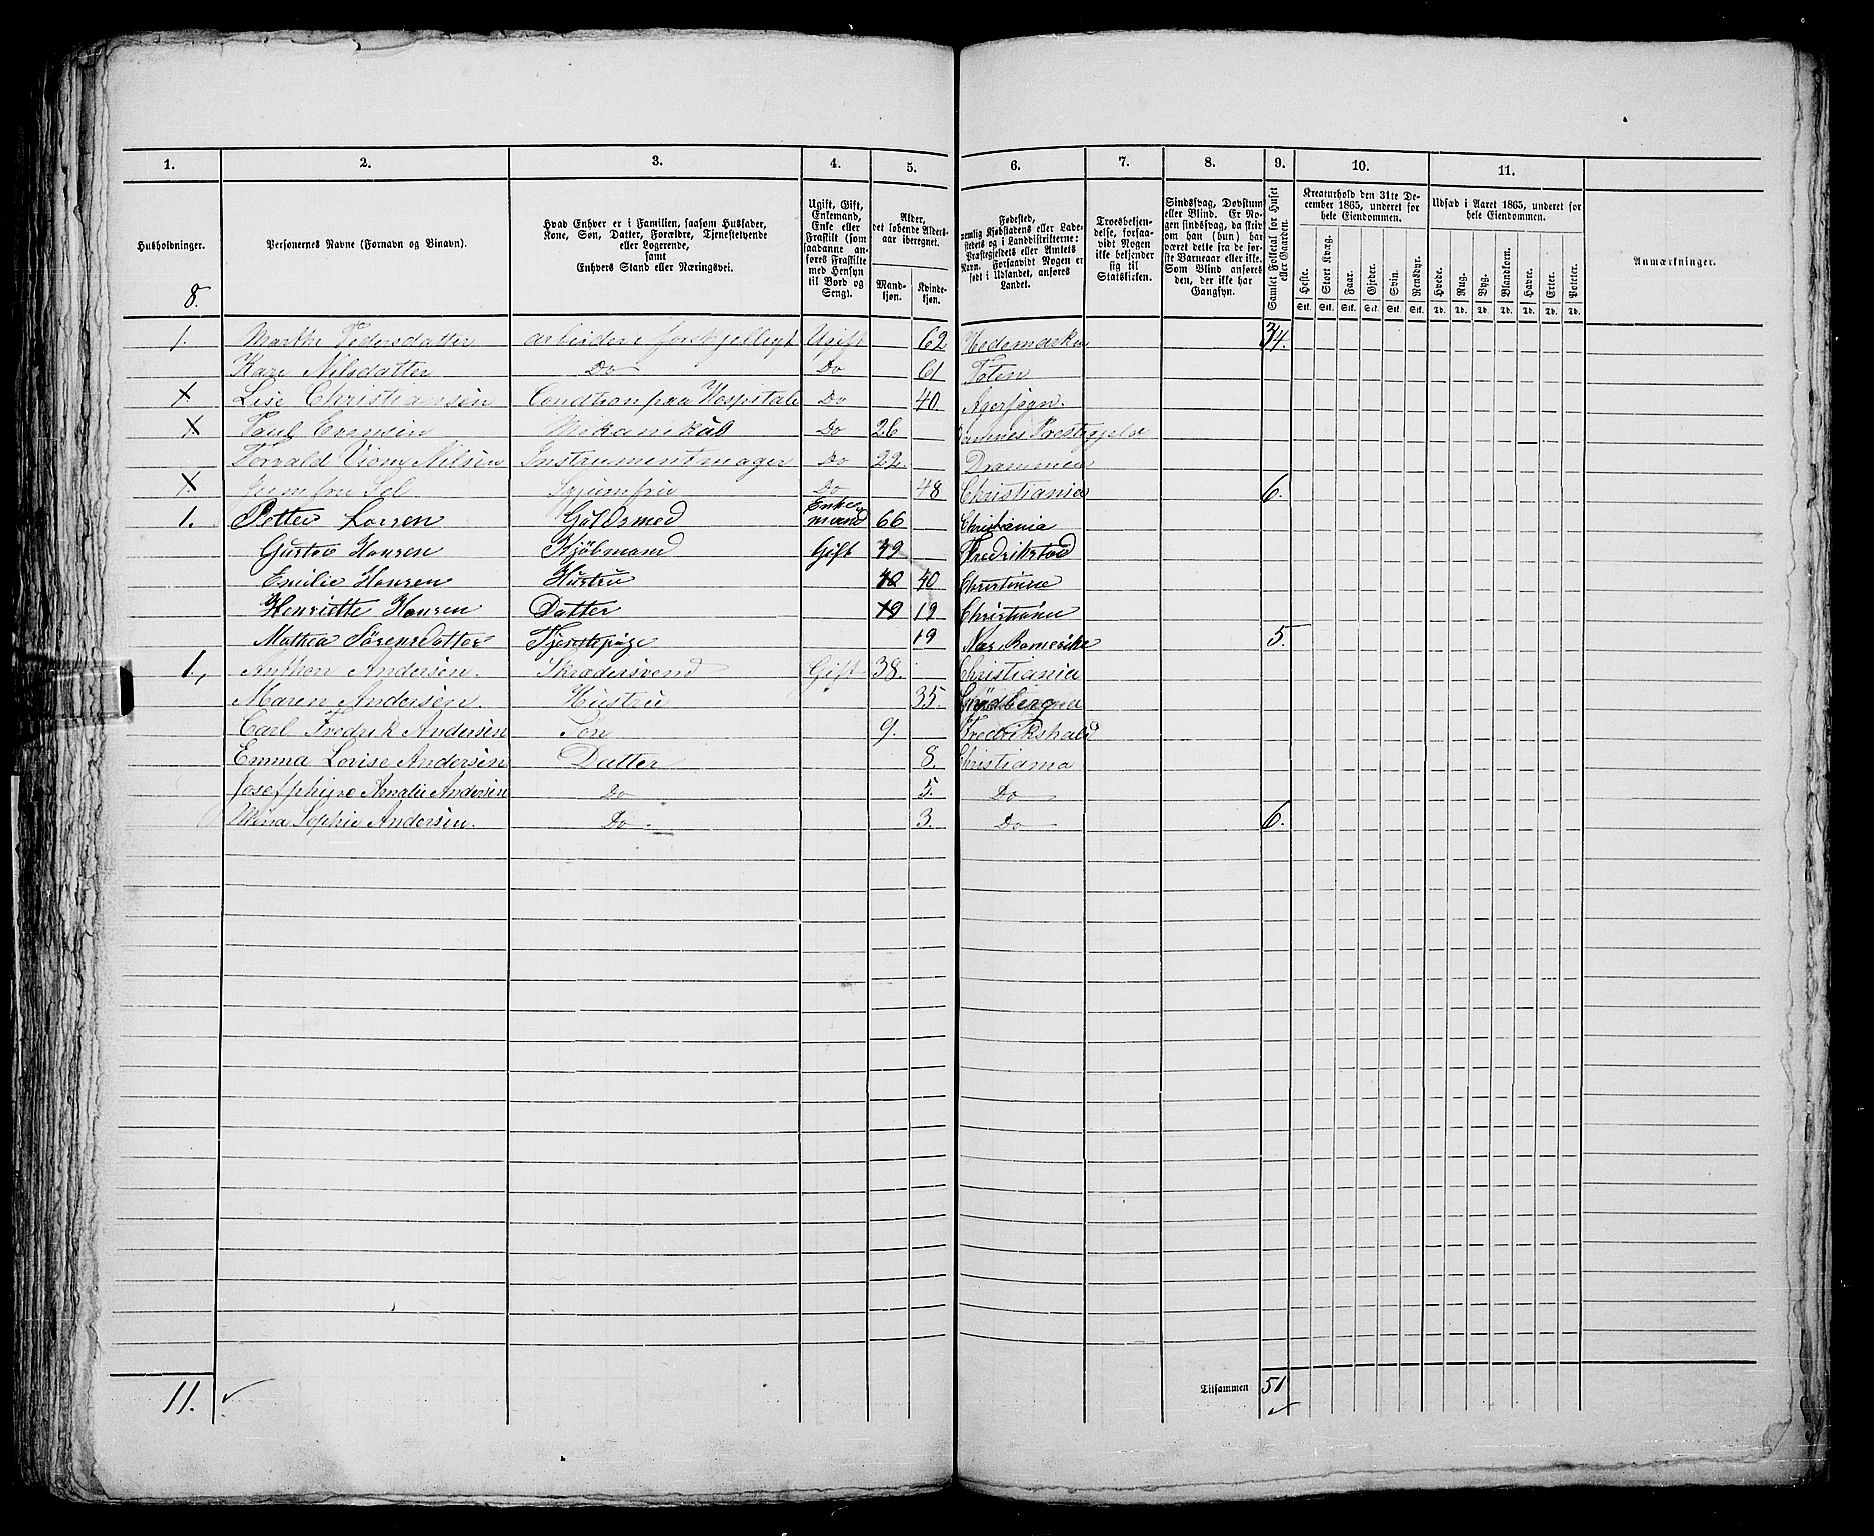 1. 2. 3. 4. 5. 6. 7. 8. 9. 10. 11.
Husholdninger.
Personernes Navne (Fornavn og Binavn).
Hvad Enhver er i Familien, saasom Husfader, Kone, Søn, Datter, Forældre, Tjenestetyende eller Logerende, samt Enhvers Stand eller Næringsvei.
Ugift, Gift, Enkemand, Enke eller Fraskilt (som saadanne anføres Fraskilte med Hensyn til Bord og Seng).
Alder, det løbende Alders-aar iberegnet.
Mand-kjøn. Kvinde-kjøn.
Fødested, nemlig Kjøbstadens eller Ladestedets og i Landdistrikterne: Præstegjeldets eller Amtets Navn. Forsaavidt Nogen er født i Udlandet, anføres Landet.
Troesbekjendelse, forsaavidt Nogen ikke bekjender sig til Statskirken.
Sindssvag, Døvstum eller Blind. Er Nogen sindssvag, da skrives om han (hun) har været dette fra de første Barneaar eller ikke. Som Blind anføres den, der ikke har Gangsyn.
Samlet Folketal for Huset eller Gaarden.
Kreaturhold den 31te December 1865, underet for hele Eiendommen.
Heste. Stort Kvæg. Faar. Gjeder. Svin. Rensdyr.
Stk. Stk. Stk. Stk. Stk. Stk.
Udsæd i Aaret 1865, underet for hele Eiendommen.
Hvede. Rug. Byg. Blandkorn. Havre. Erter. Poteter.
Td. Td. Td. Td. Td. Td. Td.
Anmærkninger.
8.
1. Marthe Pedersdatter arbeidere forskjelligt Ugift 62 Hedemarken 34.
Kari Nilsdatter Do Do 61 Toten
x Lise Christiansen Condtion paa Hospitale Do 40. Agersogn.
x Paul Evensen Do 26
Torvald Nilsen Instrumentmager Do 22. Drammen
x Jomfru Jomfru Do 48 Christiania 6.
1. Petter Larsen Guldsmed Enkemand 66 Christiania
Gustav Hansen Kjøbmand Gift 49 Fredrikstad
Emilie Hansen Hustru 40 40 Christiania
Henriette Hansen Datter 19 19 Christiania
Mathea Sørensdatter Tjenestepige 19 Romerike 5.
1., Anthon Andersen. Skrædersvend Gift 38. Christiania
Maren Andersen. Hustru 35.
Carl Fredrik Andersen Søn 9. Fredrikshald
Emma Lovise Andersen Datter 8. Christiania
Josephine Amalie Andersen Do 5. Do
Mina Sophie Andersen. Do 3. Do 6.
11. Tilsammen 51